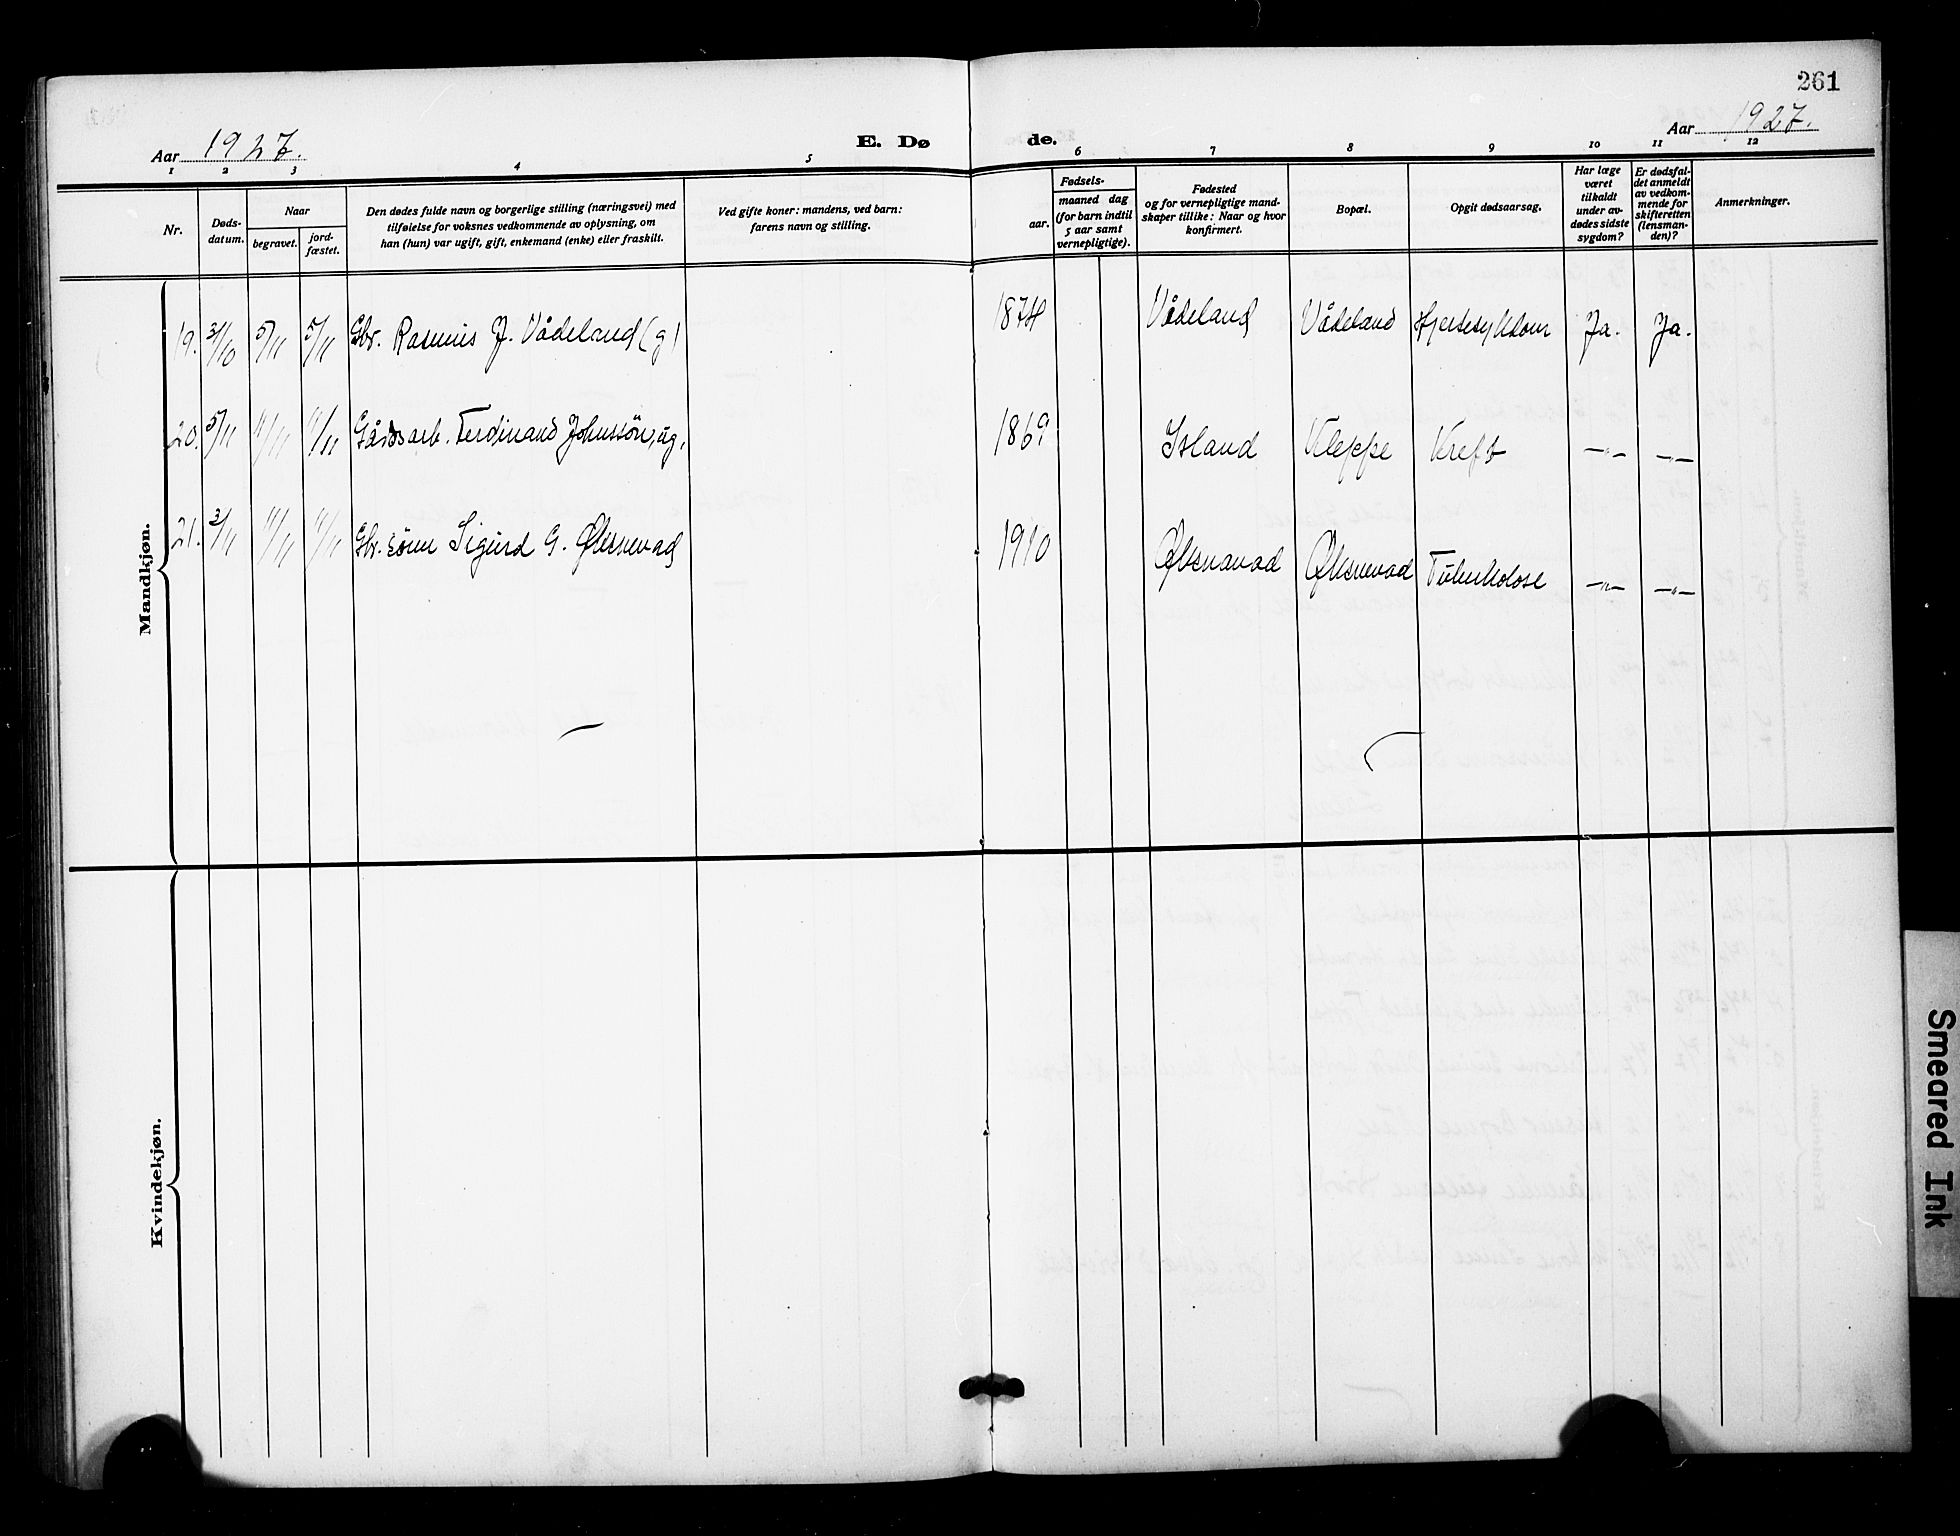 261
Aar 1927.
E. Døde.
Aar 1927.
1 2 3 4 5 6 7 8 9 10 11 12
Nr.
Døds-
datum.
Naar
begravet.
jord-
fæstet.
Den dødes fulde navn og borgerlige stilling (næringsvei) med
tilføielse for voksnes vedkommende av oplysning, om
han (hun) var ugift, gift, enkemand (enke) eller fraskilt.
Ved gifte koner: mandens, ved barn:
farens navn og stilling.
Fødsels-
aar.
maaned dag
(for barn indtil
5 aar samt
vernepligtige).
Fødested
og for vernepligtige mand-
skaper tillike: Naar og hvor
konfirmert.
Bopæl.
Opgit dødsaarsag.
Har læge
været
tilkaldt
under av-
dødes sidste
sygdom?
Er dødsfal-
det anmeldt
av vedkom-
mende for
skifteretten
(lensman-
den)?
Anmerkninger.
Mandkjøn.
19. 31/10 5/11 5/11 Gbr. Rasmus J. Vådeland (g) 1874 Vådeland Vådeland Hjertesykdom Ja. Ja.
20. 5/11 11/11 11/11 Gårdsarb. Ferdinand Johnssön, ug. 1869 Island Kleppe Kreft —"— —"—
21. 3/11 11/11 11/11 Gbr. sønn Sigurd G. Øksnevad 1910 Øksnavad Øksnevad Tuberkolose —"— —"—
Kvindekjøn.
Smeared Ink